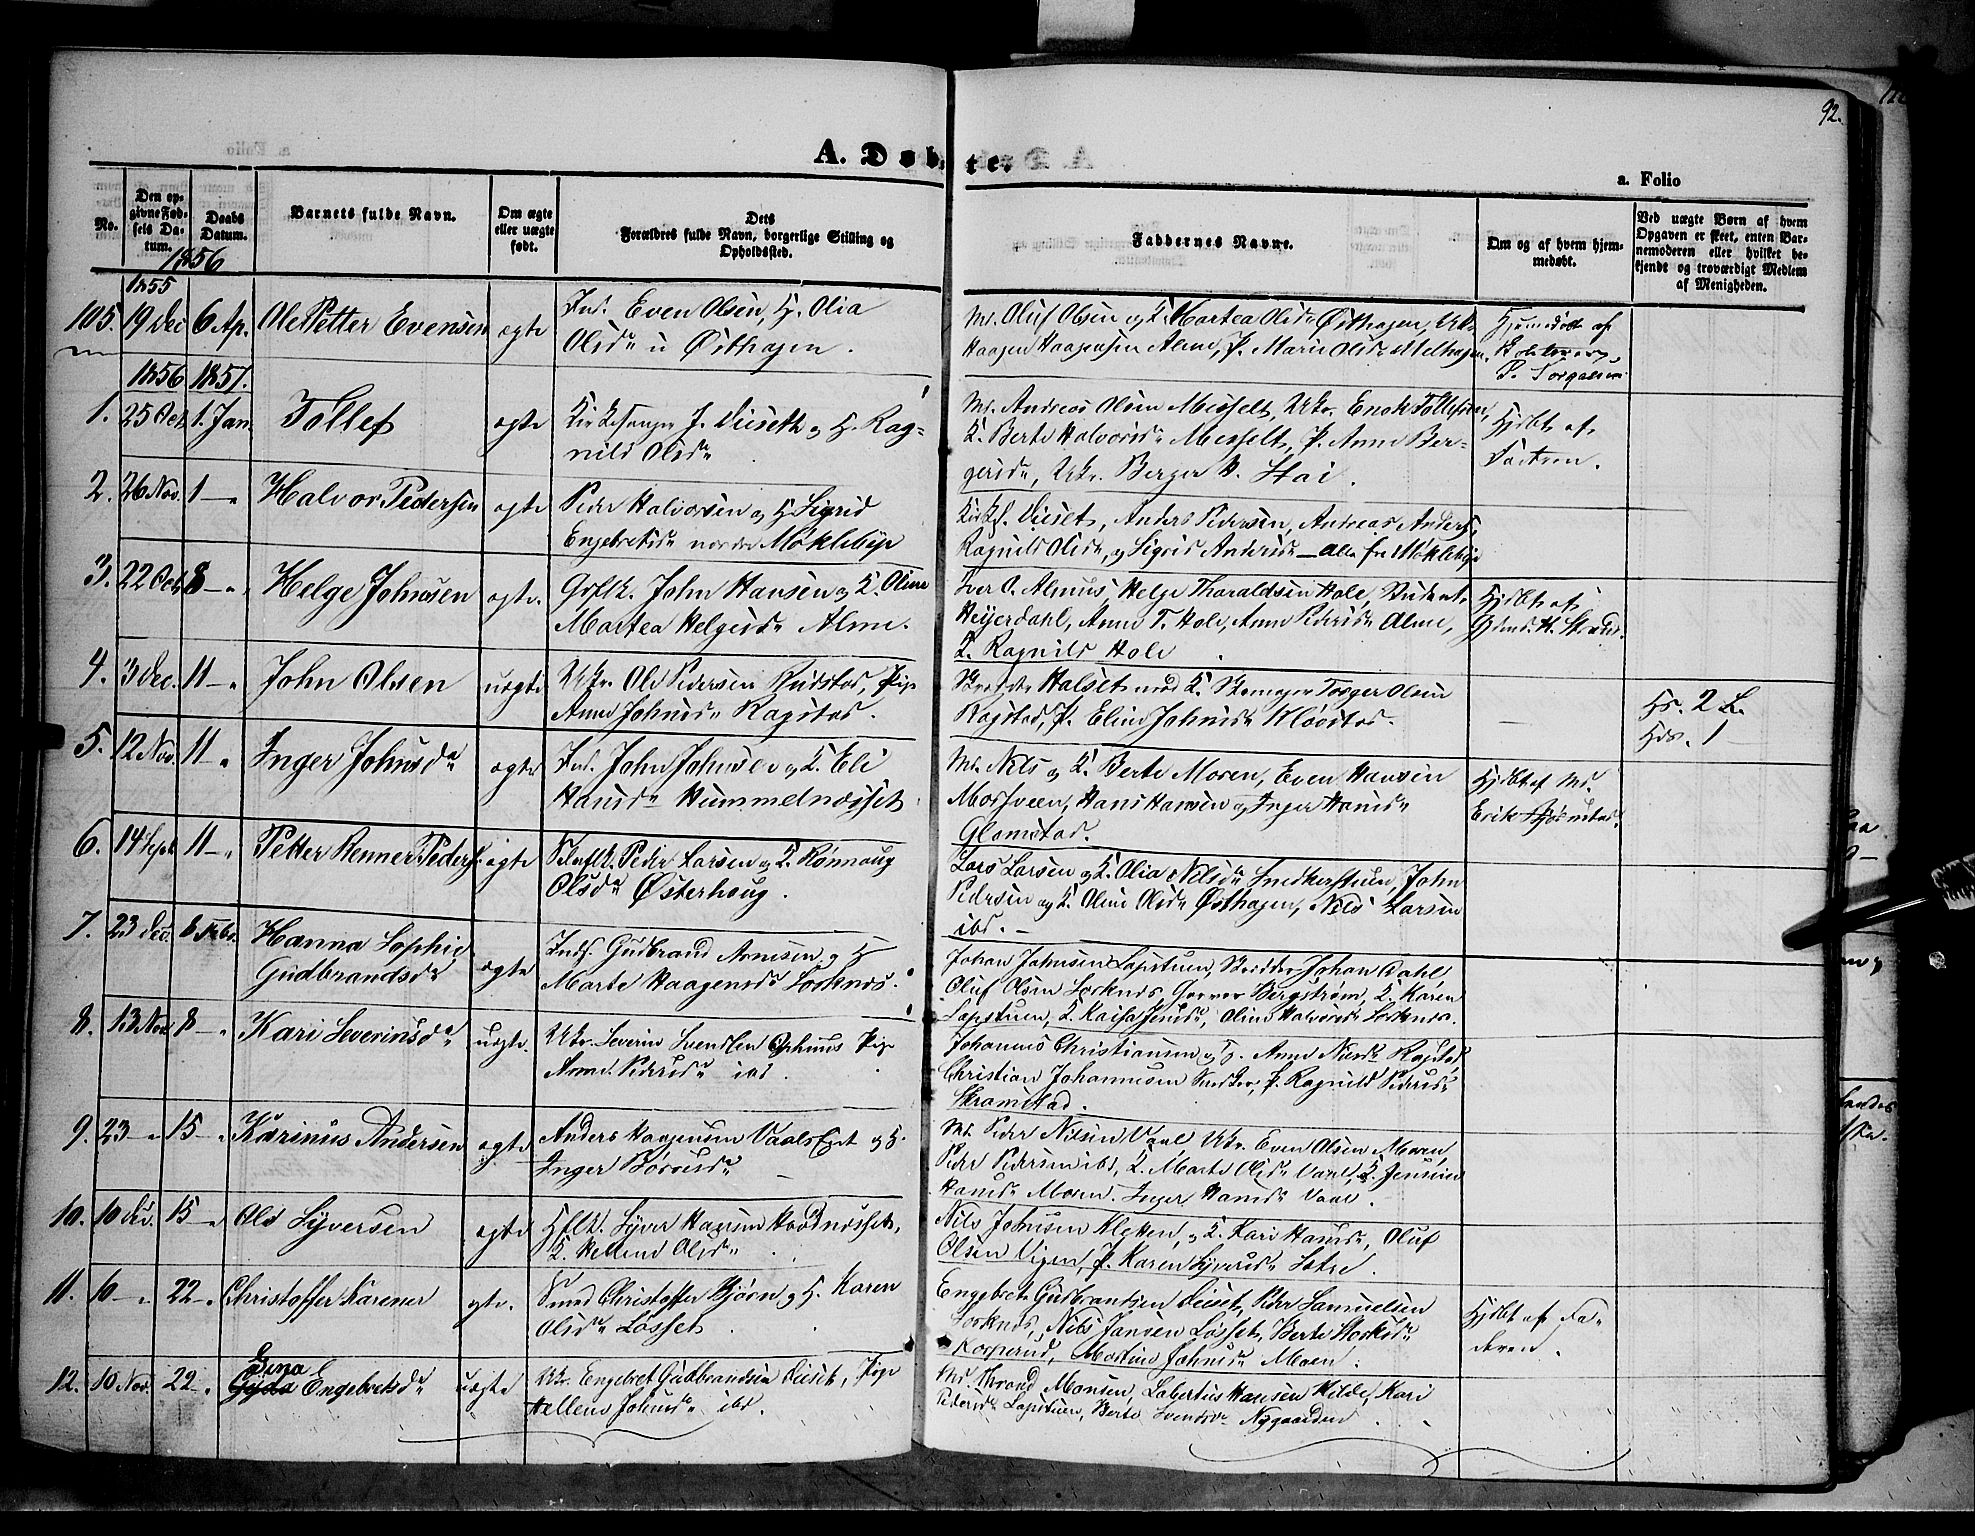 92.
A. Døbte.
a. Folio
No.
Den op-
givne Fød-
sels Da-
tum.
Daabs
Datum.
Barnets fulde Navn.
Om ægte
eller uægte
født.
Dets
Forældres fulde Navn, borgerlige Stilling og
Opholdssted.
Faddernes Navne.
Om og af hvem hjem-
medøbt.
Ved uægte Børn af hvem
Opgaven er skeet, enten Bar-
nemoderen eller hvilket be-
kjendt og troværdigt Medlem
af Menigheden.
1856
1855
105. 19 Dec 6 Ap. Ole Petter Evensen ægte Ind. Even Olsen, H. Olia
Olsdr u Østhagen.
Oluf Olsen og K. Martea Olsdr Østhagen, Uk.
Haagen Haagensen Alme, P. Marie Olsdr Melhagen.
Hjemdøbt af
P. Torgalsen
1856 1857.
1. 25 Oct. 1. Jan. Tollef ægte Kirkesanger J. Dieseth og H. Rag-
nild Olsdr
Andreas Olsen Messelt, Ukr. Enok Tollefsen,
K. Berte Halvorsdr Messelt, P. Anne Ber-
gersdr, Ukr. Berger H. Hai.
Hjdbt af
Faderen.
2. 26 Nov. 1 — " Halvor Pedersen ægte Peder Halvorsen og H. Sigrid
Engebretsdr nordre Møklebye
Dieset, Anders Pedersen, Andreas Anders.
Ragnild Olsdr, og Sigrid Andersdr — alle fra Møklebye
3. 22 Oct. 8 — " Helge Johnsen ægte. Grflk. John Hansen og K. Oline
Martea Helgesdr Alme.
Iver O. Almus, Helge Tharaldsen Hole, Student
Heyerdahl, Anne T. Hole, Anne Pedersdr Alme,
K. Ragnild Hole
Hjdbt af
H. Strand.
4. 3 Dec. 11 — " John Olsen uægte Ukr. Ole Pedersen Rudstad, Pige
Anne Johnsdr Ragstad.
Halset med K. Skomager Torger Olsen
Ragstad, P. Eline Johnsdr Kloostad.
—
Hs. 2 L.
Hds. 1 —
5. 12 Nov. 11 — " Inger Johnsdr ægte Ind. John Johnsen og K. Eli
Hansdr Hummelnæsset
Nils og K. Berte Moren, Even Hansen
Morsveen, Hans Hansen og Inger Hansdr
Glomstad.
Hjdbt af
Erik Bjørnstad.
6. 14 Sept. 11 — " Petter Renner Peders. ægte Peder Larsen og K. Rønnaug
Olsdr Østerhaug.
Lars Larsen og K. Olia Nilsdr Snedkerstuen, John
Pedersen og K. Oline Olsdr Østhagen, Nils Larsen
ibd. —
7. 23 Dec. 8 Febr. Hanna Sophie
Gudbrandsdr ægte Inds. Gudbrand Arnesen og H.
Marte Haagensdr Lorknes.
Johan Johnsen Lapstuen, Skrædder Johan Dahl
Oluf Olsen Lorknes, Garver Bergstrøm, K. Karen
Lapstuen, K. Kaisa Jensdr, Oline Halvorsdr Lorknes.
8. 13 Nov. 8 — " Kari Severinsdr uægte. Ukr. Severin Svendsen Ophuus Pige
Anne Pedersdr ibd.
Johannes Christiansen og H. Anne Nilsdr Ragstad,
Christian Johannesen P. Ragnild Pedersdr
Skramstad.
9. 23 — " 15 — " Karinus Andersen ægte Anders Haagensen Vaalseiet og H.
Inger Børresdr —
Peder Nilsen Vaal Ukr. Even Olsen Moren,
Peder Pedersen ibd, K. Marte Olsdr Vaal, K. Jensine
Hansdr Moren. Inger Hansdr Vaal.
10. 10 Dec. 15 — " Ole Syversen ægte Hflk. Syver Hansen Haadnæsset,
K. Hellene Olsdr
Nils Johnsen Kletten, og K. Kari Hansdr, Oluf
Olsen Vigen, P. Karen Syversdr Sætre.
11. 10 — " 22 — " Christoffer Karener ægte. Smed Christoffer Bjørn og H. Karen
Olsdr Løsset
Engebret Gudbrandsen Dieset, Peder Samuelsen
Lorknes, Nils Jansen Løsset, Berte
Kopperud, Martine Johnsdr Moen.
Hjdbt af Fa-
deren.
Gina
12. 10 Nov. 22 — " Gyda Engebretsdr uægte Ukr. Engebret Gudbrandsen Dieset, Pige
Hellene Johnsdr ibd.
Thrond Monsen, Labertus Hansen Hilde, Kari
Pedersdr Lapstuen, Berte Svendsdr Nygaarden